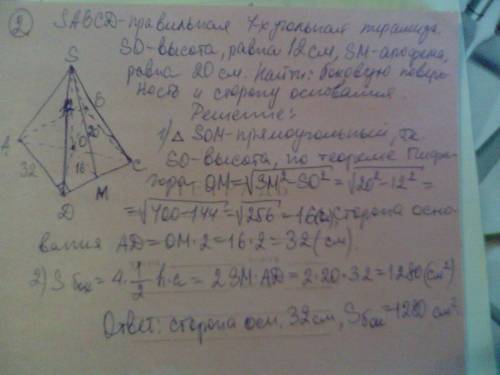 2) SABCD-правильная 4-х угольная пирамида.
SO-высота, равна 12 см, SM-апофема,
равна 20 см. Найти: боковую поверх-
ность и сторону основания.
Решение:
1) △ SOM-прямоугольный, тк
SO-высота, по теореме Пифа-
гора OM=√SM²-SO²=√20²-12²=
=√400-144=√256=16см, сторона осно-
вания AD=OM·2=16·2=32(см).
2) Sбок=4·1/2 h·a=2SM·AD=2·20·32=1280(см²)
Ответ: сторона осн. 32см, Sбок=1280 см².
S
B
A
20
O
C
32
16
D
M